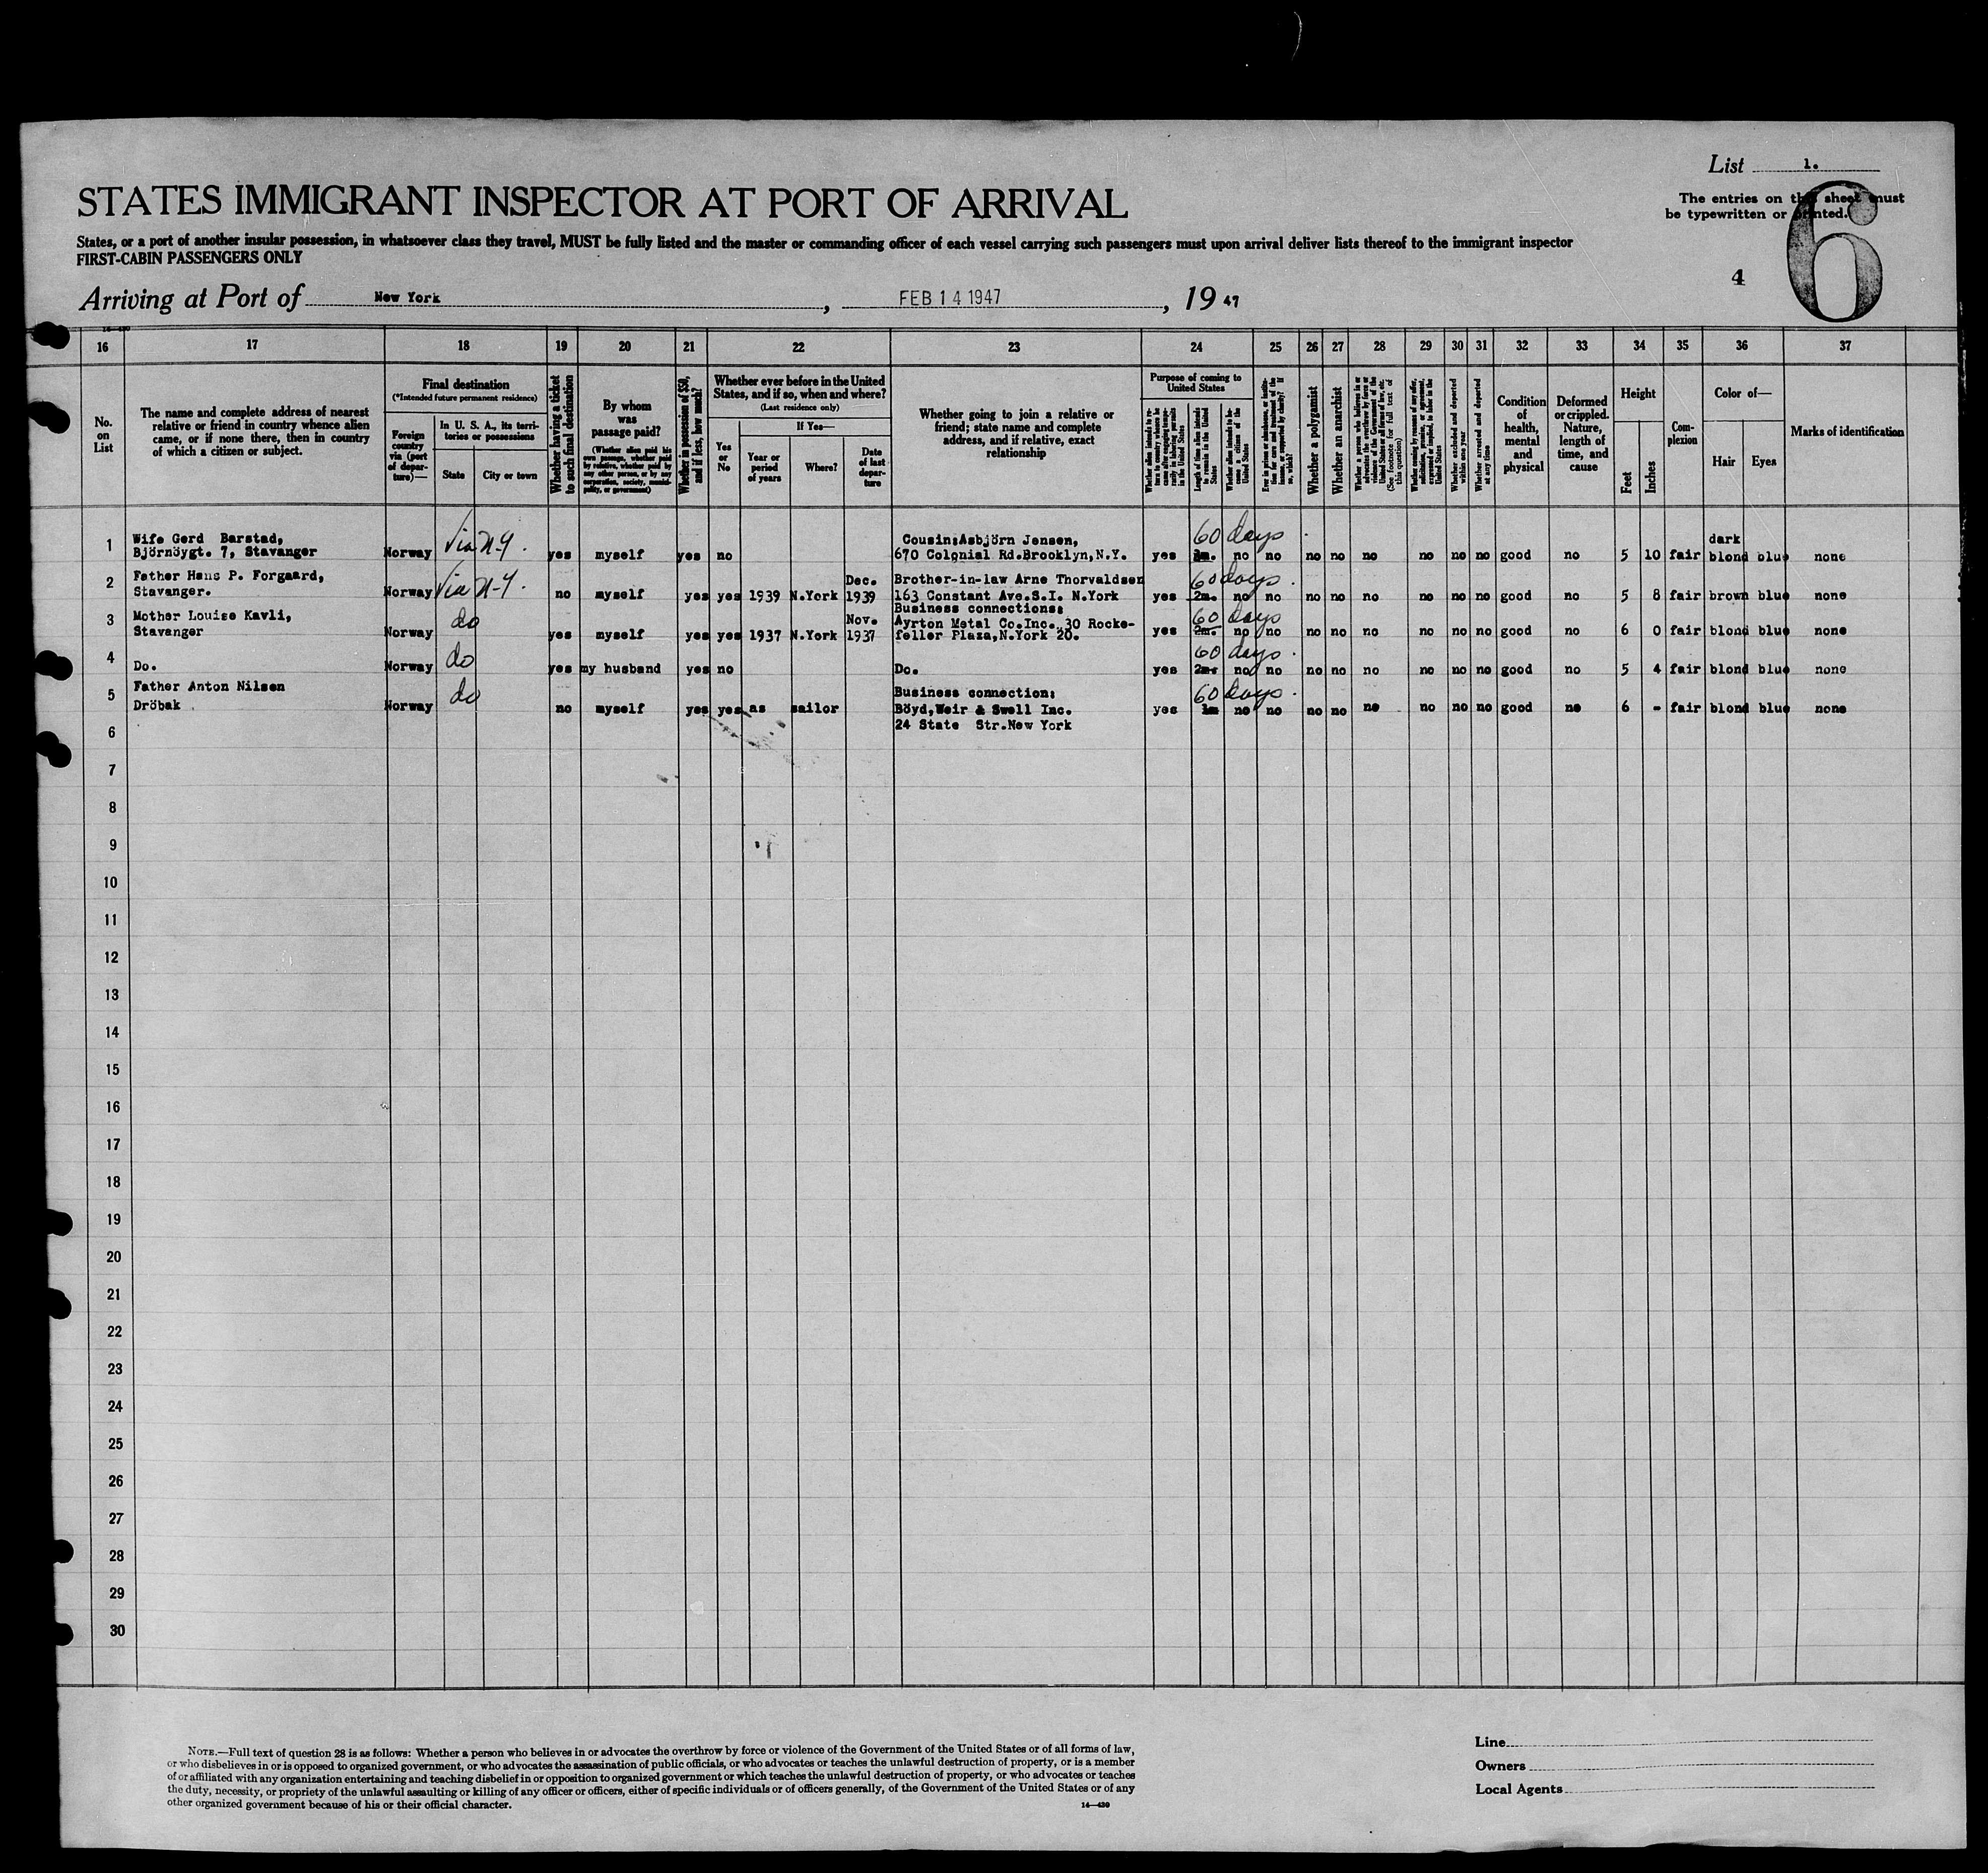 List 1.
STATES IMMIGRANT INSPECTOR AT PORT OF ARRIVAL
The entries on this sheet must
be typewritten or printed.
6
States, or a port of another insular possession, in whatsoever class they travel, MUST be fully listed and the master or commanding officer of each vessel carrying such passengers must upon arrival deliver lists thereof to the immigrant inspector
FIRST-CABIN PASSENGERS ONLY
4
Arriving at Port of New York, FEB 14 1947, 19 47
16 17 18 19 20 21 22 23 24 25 26 27 28 29 30 31 32 33 34 35 36 37
No. on List
The name and complete address of nearest
relative or friend in country whence alien
came, or if none there, then in country
of which a citizen or subject.
Final destination
(*Intended future permanent residence)
Foreign country via (port of departure)—
In U. S. A., its territories or possessions
State
City or town
Whether having a ticket to such final destination
By whom was passage paid?
(Whether alien paid his own passage, whether paid by relative, whether paid by any other person, or by any corporation, society, municipality, or government)
Whether in possession of $50, and if less, how much?
Whether ever before in the United States, and if so, when and where?
(Last residence only)
Yes or No
If Yes—
Year or period of years
Where?
Date of last departure
Whether going to join a relative or
friend; state name and complete
address, and if relative, exact
relationship
Purpose of coming to United States
Length of time alien intends to remain in the United States
Whether alien intends to become a citizen of the United States
Whether a polygamist
Whether an anarchist
(See footnote for full text of this question)
Whether excluded and deported within one year
Whether arrested and deported at any time
Condition of health, mental and physical
Deformed or crippled. Nature, length of time, and cause
Height
Feet
Inches
Complexion
Color of—
Hair
Eyes
Marks of identification
1 Wife Gerd Barstad, Via N-Y. Cousin:Asbjörn Jensen, 60 days dark
Björnöygt. 7, Stavanger Norway yes myself yes no 670 Colonial Rd.Brooklyn,N.Y. yes 2m. no no no no no no no no good no 5 10 fair blond blue none
2 Father Hans P. Forgaard, Via N-Y. Dec. Brother-in-law Arne Thorvaldsen 60 days.
Stavanger. Norway no myself yes yes 1939 N.York 1939 163 Constant Ave.S.I. N.York yes 2m. no no no no no no no no good no 5 8 fair brown blue none
Business connections:
3 Mother Louise Kavli, do Nov. Ayrton Metal Co.Inc. 30 Rocke- 60 days
Stavanger Norway yes myself yes yes 1937 N.York 1937 feller Plaza,N.York 20. yes 2m. no no no no no no no no good no 6 0 fair blond blue none
4 do 60 days.
Do. Norway yes my husband yes no Do. yes 2m. no no no no no no no no good no 5 4 fair blond blue none
5 Father Anton Nilsen do Business connection: 60 days.
Dröbak Norway no myself yes yes as sailor Böyd,Weir & Swell Inc. yes 1m no no no no no no no no good no 6 - fair blond blue none
6 24 State Str.New York
7
8
9
10
11
12
13
14
15
16
17
18
19
20
21
22
23
24
25
26
27
28
29
30
NOTE.—Full text of question 28 is as follows: Whether a person who believes in or advocates the overthrow by force or violence of the Government of the United States or of all forms of law,
or who disbelieves in or is opposed to organized government, or who advocates the assassination of public officials, or who advocates or teaches the unlawful destruction of property, or is a member
of or affiliated with any organization entertaining and teaching disbelief in or opposition to organized government or which teaches the unlawful destruction of property, or who advocates or teaches
the duty, necessity, or propriety of the unlawful assaulting or killing of any officer or officers, either of specific individuals or of officers generally, of the Government of the United States or of any
other organized government because of his or their official character.
Line
Owners
Local Agents